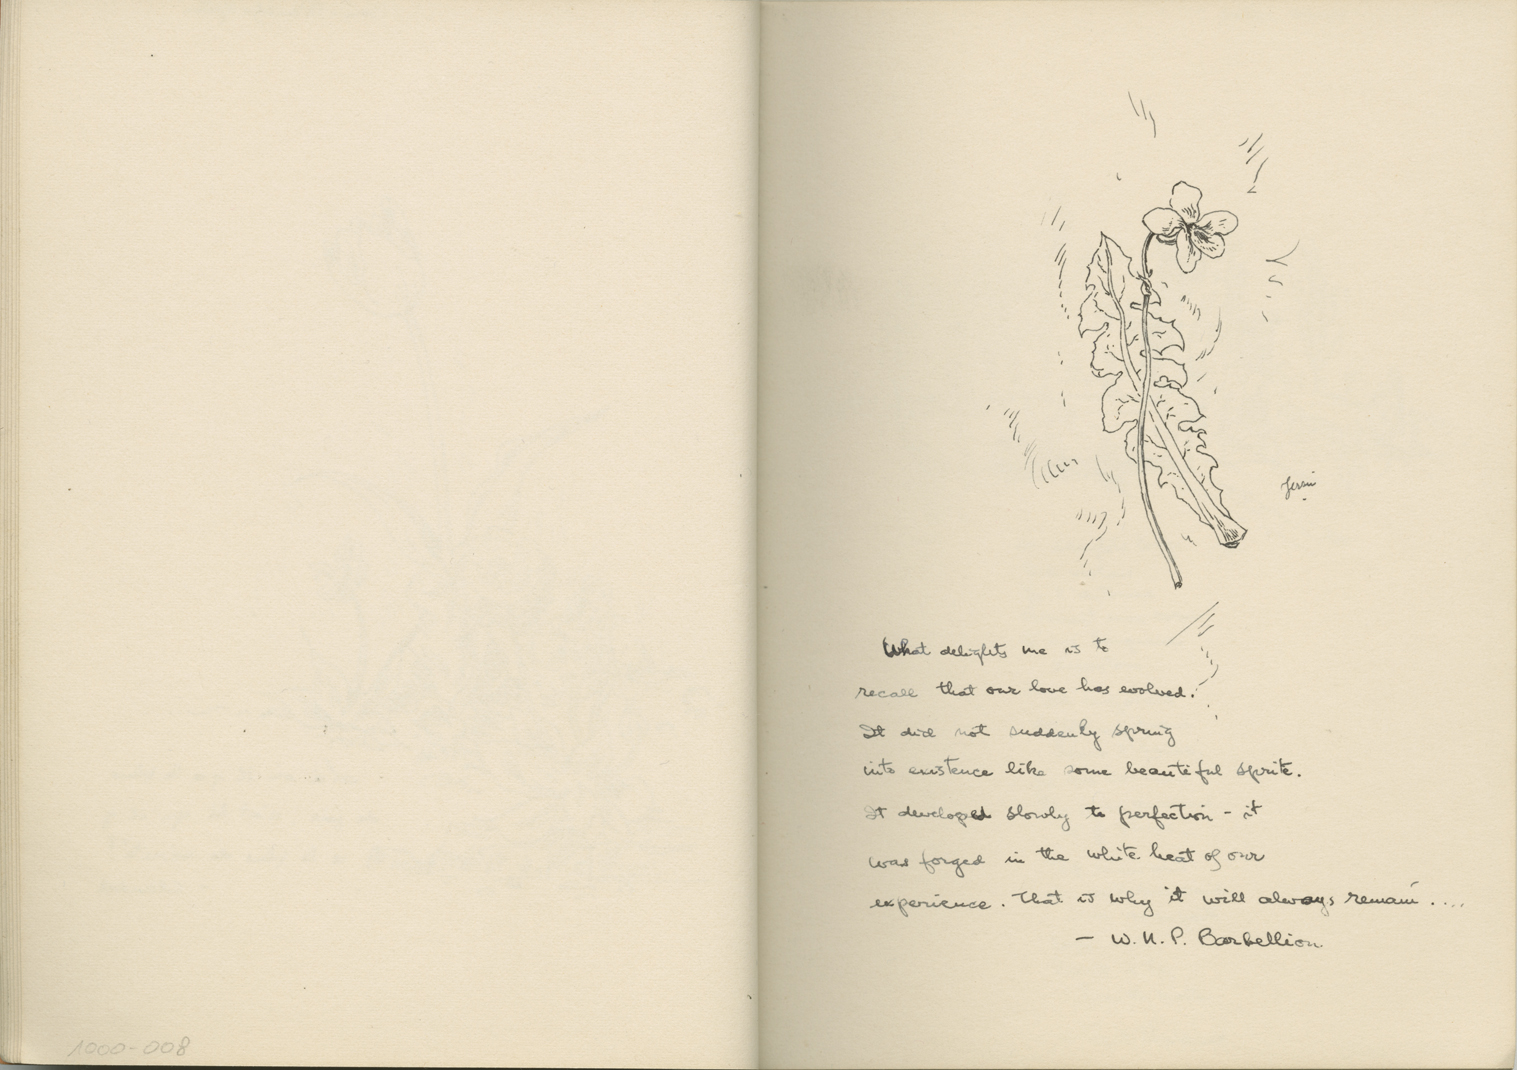 What delights me is to
recall that our love has evolved.
It did not suddenly spring
into existence like some beautiful sprite.
It developed slowly to perfection - it
was forged in the white heat of our
experience. That is why it will always remain....
— W. N. P. Barbellion.
1000-008